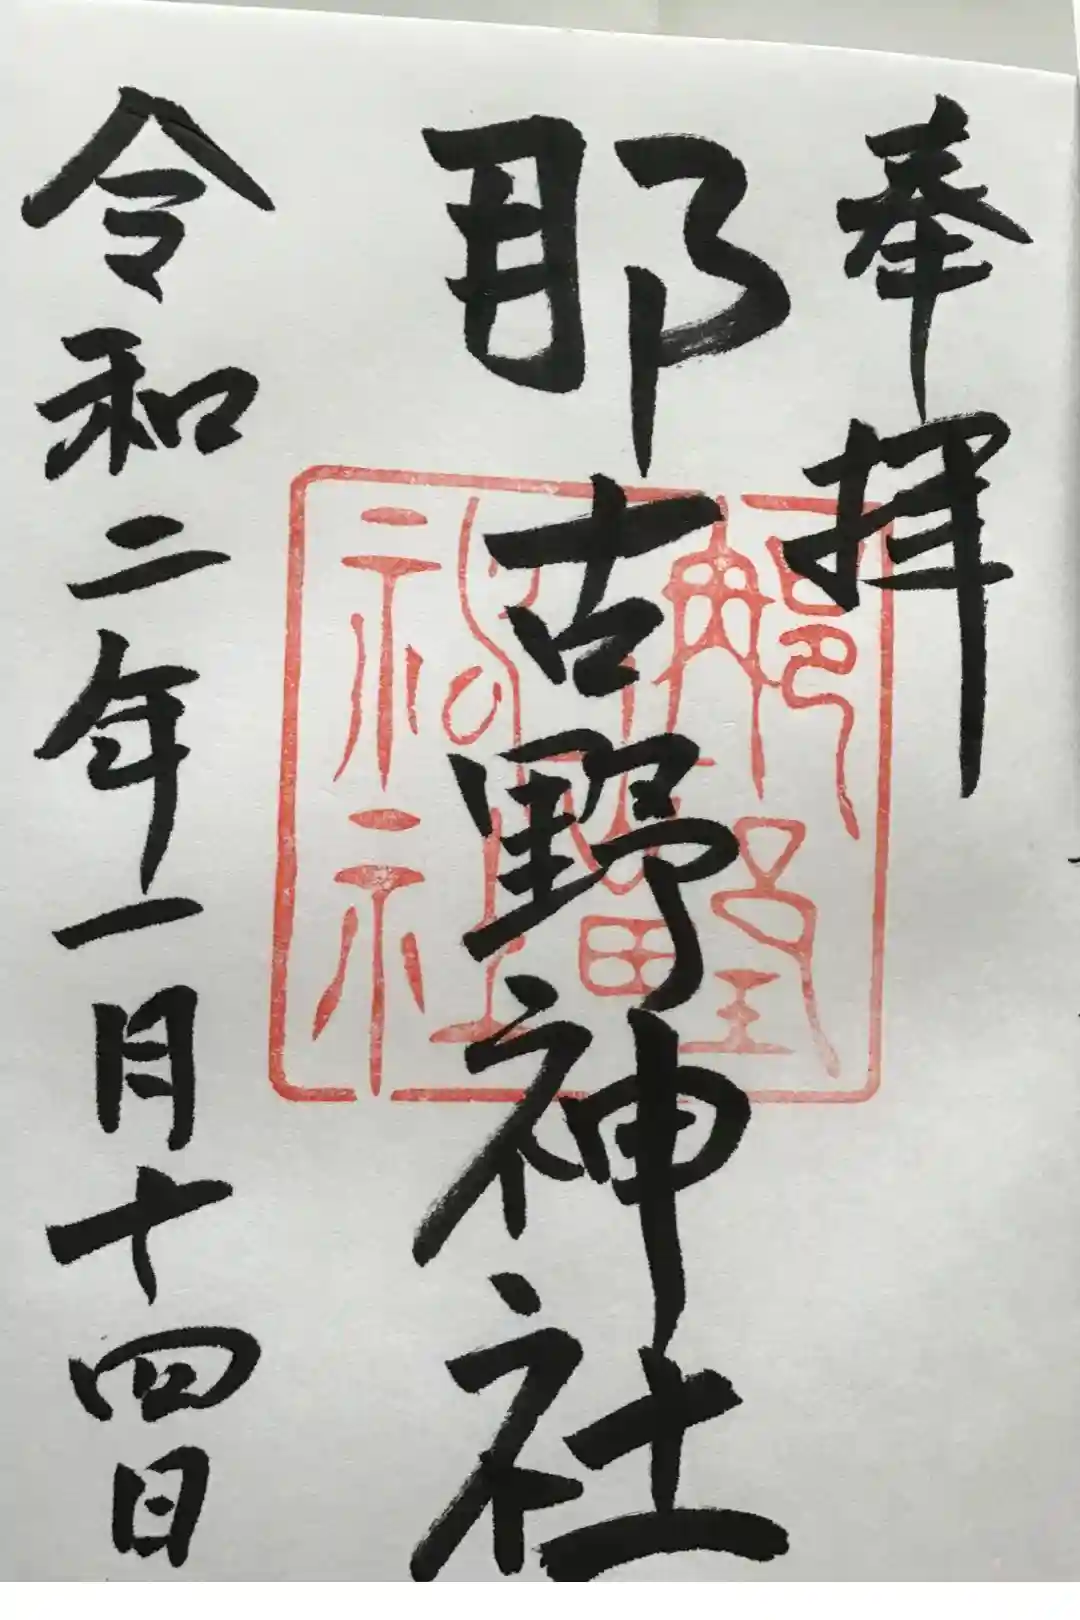 奉拝
那古野神社
令和二年一月十四日